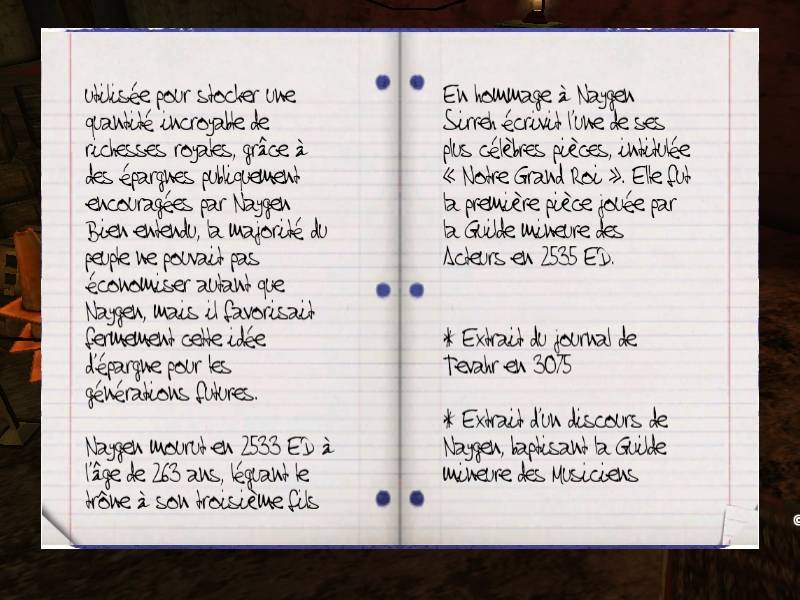 utilisée pour stocker une
quantité incroyable de
richesses royales, grâce à
des épargnes publiquement
encouragées par Naygen
Bien entendu, la majorité du
peuple ne pouvait pas
économiser autant que
Naygen, mais il favorisait
fermement cette idée
d'épargne pour les
générations futures.
Naygen mourut en 2533 ED à
l'âge de 263 ans, léguant le
trône à son troisième fils
En hommage à Naygen
Sirreh écrivit l'une de ses
plus célèbres pièces, intitulée
« Notre Grand Roi ». Elle fut
la première pièce jouée par
la Guilde mineure des
Acteurs en 2535 ED.
* Extrait du journal de
Tevahr en 3075
* Extrait d'un discours de
Naygen, baptisant la Guilde
mineure des Musiciens
©